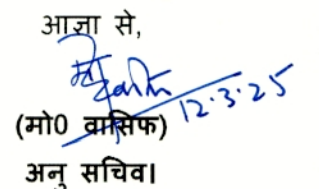 आज्ञा से,
12.3.25
(मो0 वासिफ)
अनु सचिव।